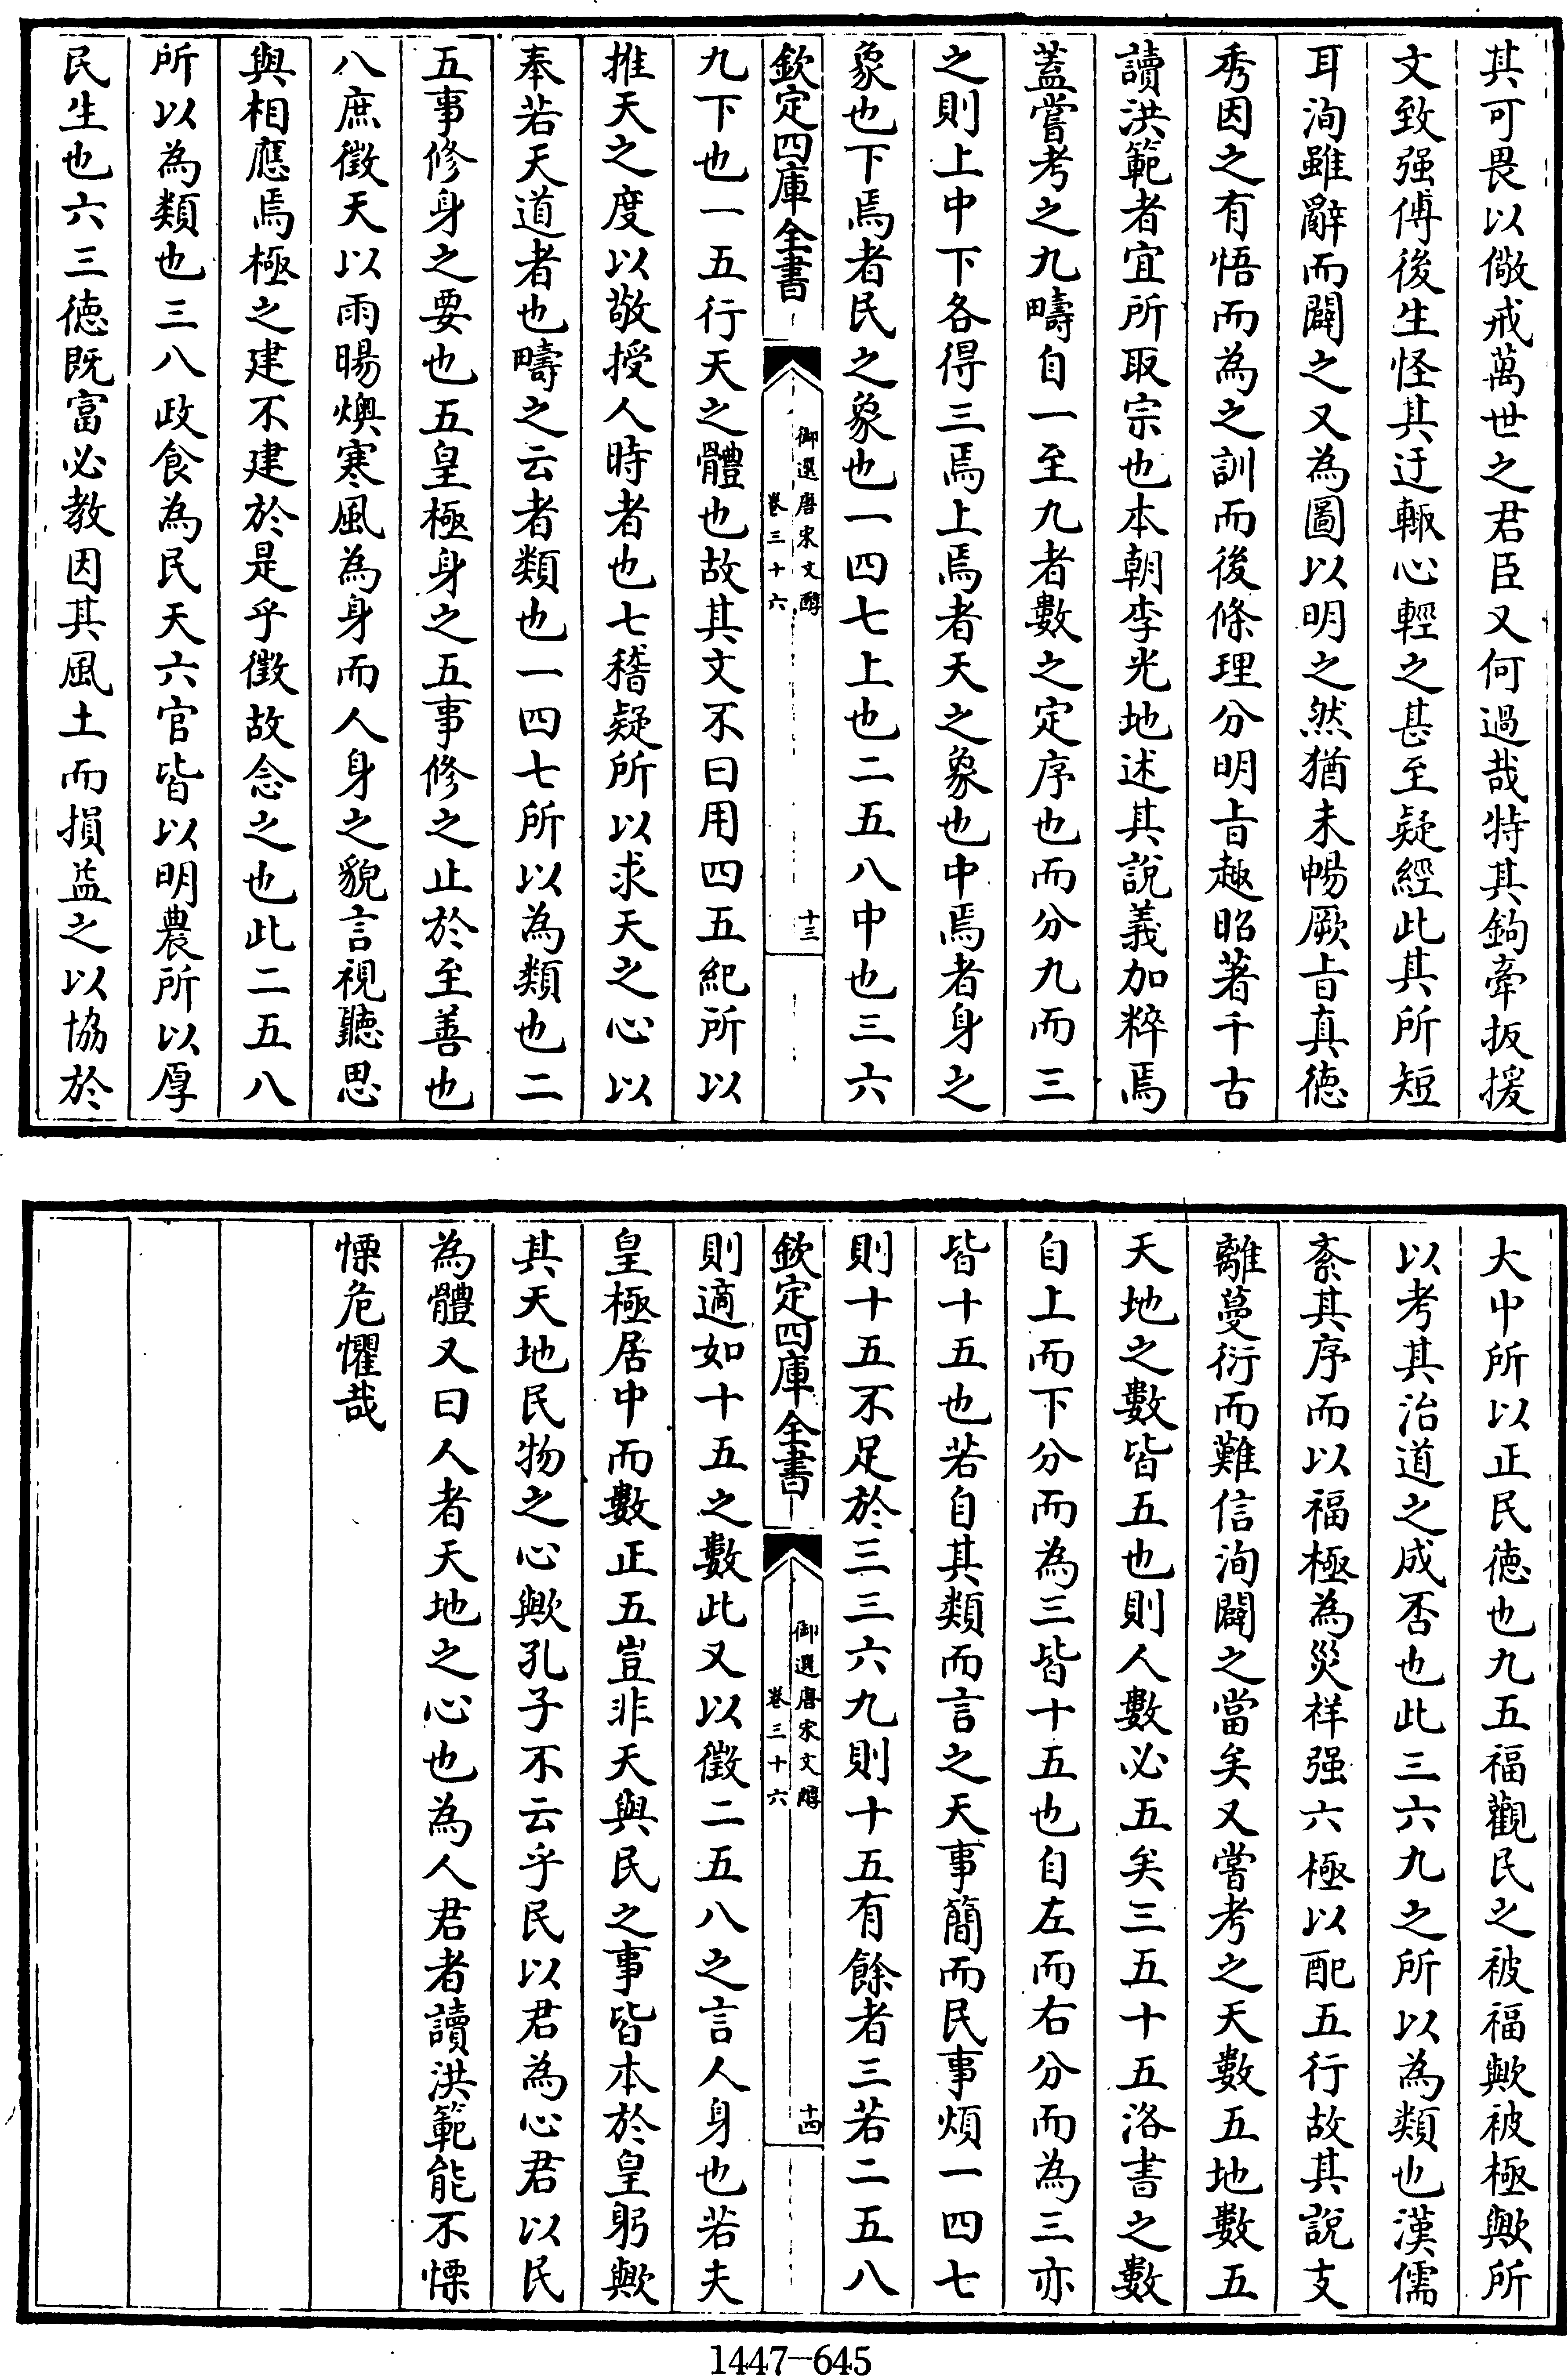 其可畏以儆戒萬世之君臣又何過哉特其鉤牽扳援
文致强傅後生怪其迂輒心輕之甚至疑經此其所短
耳洵雖辭而闢之又為圖以明之然猶未暢厥㫖真徳
秀因之有悟而為之訓而後條理分明㫖趣昭著千古
讀洪範者宜所取宗也本朝李光地述其說義加粹焉
蓋嘗考之九疇自一至九者數之定序也而分九而三
之則上中下各得三焉上焉者天之象也中焉者身之
象也下焉者民之象也一四七上也二五八中也三六
欽定四庫全書
御選唐宋文醇
卷三十六
十三
九下也一五行天之體也故其文不曰用四五紀所以
推天之度以敬授人時者也七稽疑所以求天之心以
奉若天道者也疇之云者類也一四七所以為類也二
五事修身之要也五皇極身之五事修之止於至善也
八庶徵天以雨暘燠寒風為身而人身之貌言視聽思
與相應焉極之建不建於是乎徵故念之也此二五八
所以為類也三八政食為民天六官皆以明農所以厚
民生也六三徳既富必教因其風土而損益之以協於
大中所以正民徳也九五福觀民之被福歟被極歟所
以考其治道之成否也此三六九之所以為類也漢儒
紊其序而以福極為災祥强六極以配五行故其説支
離蔓衍而難信洵闢之當矣又嘗考之天數五地數五
天地之數皆五也則人數必五矣三五十五洛書之數
自上而下分而為三皆十五也自左而右分而為三亦
皆十五也若自其類而言之天事簡而民事煩一四七
則十五不足於三三六九則十五有餘者三若二五八
欽定四庫全書
御選唐宋文醇
卷三十六
十四
則適如十五之數此又以徵二五八之言人身也若夫
皇極居中而數正五豈非天與民之事皆本於皇躬歟
其天地民物之心歟孔子不云乎民以君為心君以民
為體又曰人者天地之心也為人君者讀洪範能不慄
慄危懼哉
1447-645